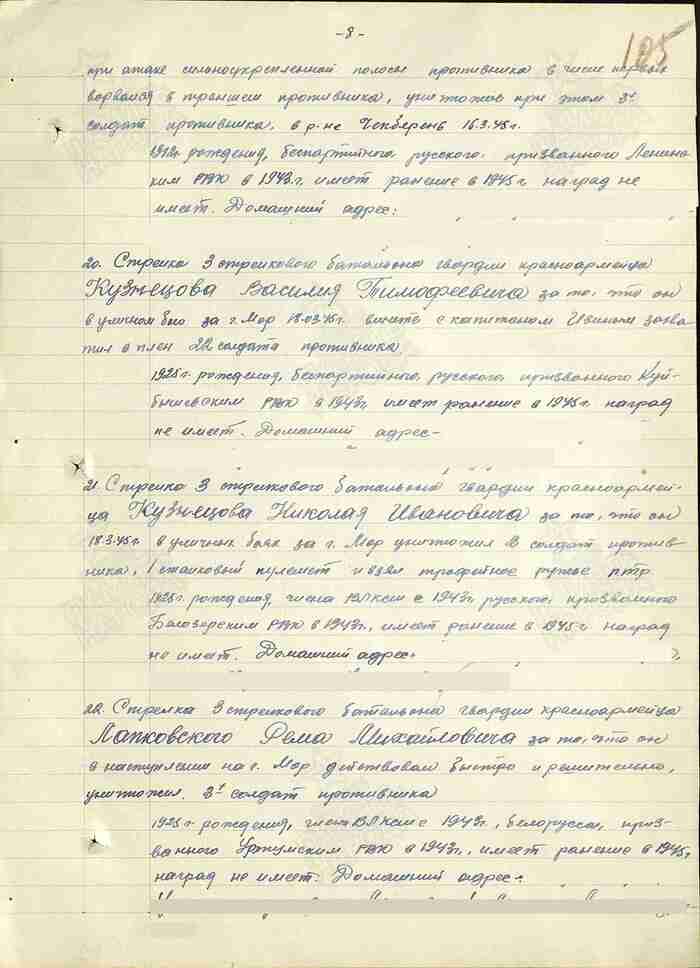 -8-
105
при атаке сильноукрепленной полосы противника в числе первых
ворвался в траншеи противника, уничтожив при этом 3х
солдат противника, в р-не Чекберень 16.3.45г.
рождения, беспартийного русского, призванного Ленинс
ким РВК в 1942г. имеет ранение в 1945г наград не
имеет. Домашний адрес:
20. Стрелка 3 стрелкового батальона гвардии красноармейца
Кузнецова Василия Тимофеевича за то, что он
в уличном бою за г. Мор 18.03.45г. вместе с капитаном захва
тил в плен 22 солдата противника.
1925г. рождения, беспартийного, русского, призванного Куй-
бышевским РВК в 1943г имеет ранение в 1945г наград
не имеет. Домашний адрес-
21. Стрелка 3 стрелкового батальона гвардии красноармей-
ца Кузнецова Николая Ивановича за то, что он
18.3.45г. в уличных боях за г. Мор уничтожил солдат против-
ника, 1 станковый пулемет и взял трофейное ружье птр.
рождения, члена ВЛКСМ с 1943г русского, призванного
Белозерским РВК в 1943г., имеет ранение в 1945г наград
не имеет. Домашний адрес:
22. Стрелка 3 стрелкового батальона гвардии красноармейца
Лапковского Рема Михайловича за то, что он
в наступлении на г. Мор действовал быстро и решительно,
уничтожил 3х солдат противника
1925г рождения, члена ВЛКСМ с 1943г., белорусса, приз-
ванного Уржумским РВК в 1943г., имеет ранение в 1945г
наград не имеет. Домашний адрес: